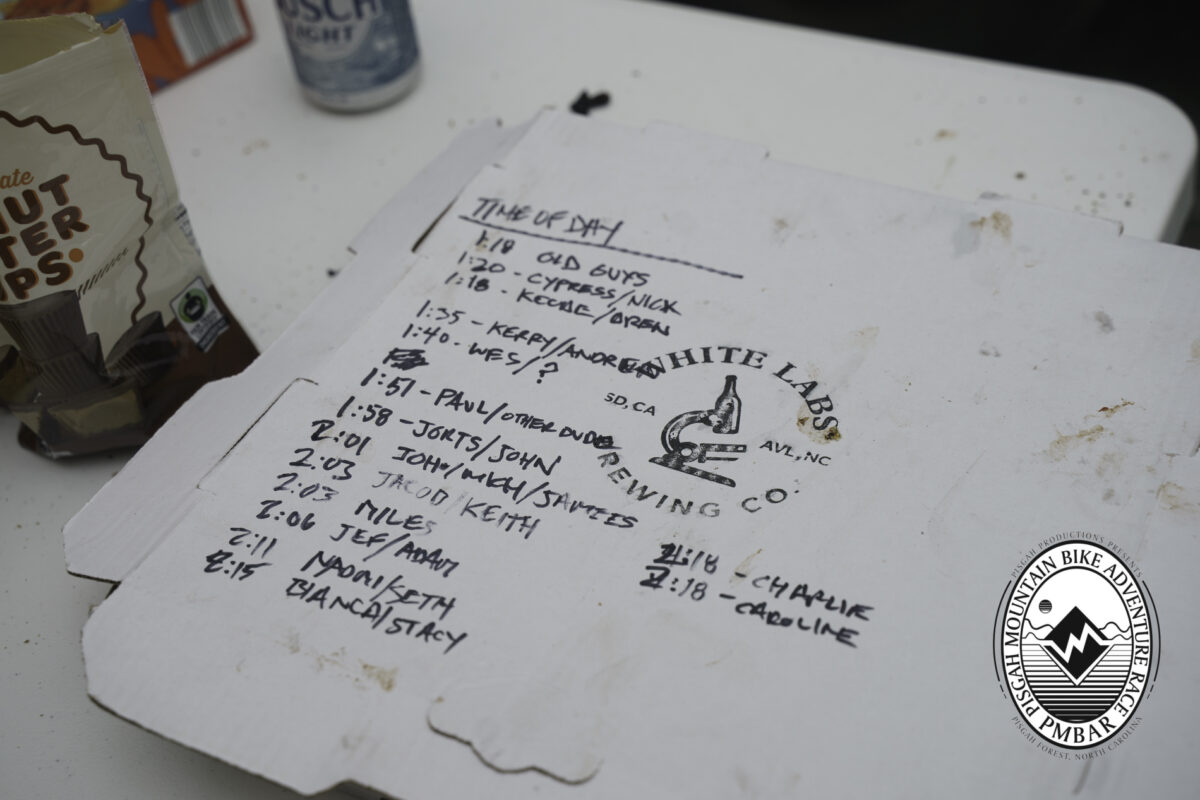 USCH
LIGHT
ate
NUT
TER
UPS
TIME OF DAY
1:18 OLD GUYS
1:20 - CYPRESS/NICK
1:18 -
1:35 - KERRY/ANDREW
1:40 - WES/?
1:57 - PAUL/OTHER DUDE
1:58 - JORTS/JOHN
2:01
2:03 JACOB/KEITH
2:03 MILES
2:06 JEF/ADAM
2:11 NAOMI/KETH
2:15 BIANCA/STACY
2:18 - CHARLIE
2:18 - CAROLINE
WHITE LABS
SD, CA
AVL, NC
BREWING CO.
PISGAH PRODUCTIONS PRESENTS
PISGAH MOUNTAIN BIKE ADVENTURE RACE
PMBAR
PISGAH FOREST, NORTH CAROLINA